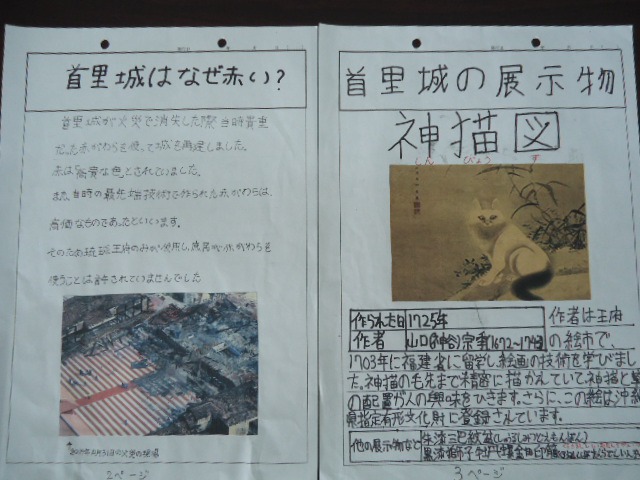 首里城はなぜ赤い?
首里城が火災で消失した際、当時貴重
だった赤がわらを使って城を再建しました。
赤は「高貴な色」とされていました。
また、当時の最先端技術で作られた赤がわらは、
高価なものであったといいます。
そのため琉球王府のみが使用し、庶民が赤がわらを
使うことは許されていませんでした
10月31日の火災の現場
2ページ
首里城の展示物
神猫図
しん びょう ず
作られた日 1725年
作者 山口(神谷)宗季(1672~1743)
作者は王府
の絵師で、
1703年に福建省に留学し絵画の技術を学びまし
た。神猫の毛先まで精密に描かれていて、神猫と
の配置が人の興味をひきます。さらに、この絵は沖縄
県指定有形文化財に登録されています。
他の展示物など
朱漆巴紋
黒漆獅子牡丹
3ページ